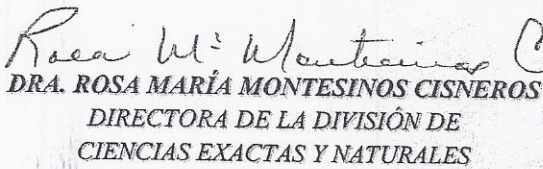 Rosa Mª Montesinos C
DRA. ROSA MARÍA MONTESINOS CISNEROS
DIRECTORA DE LA DIVISIÓN DE
CIENCIAS EXACTAS Y NATURALES